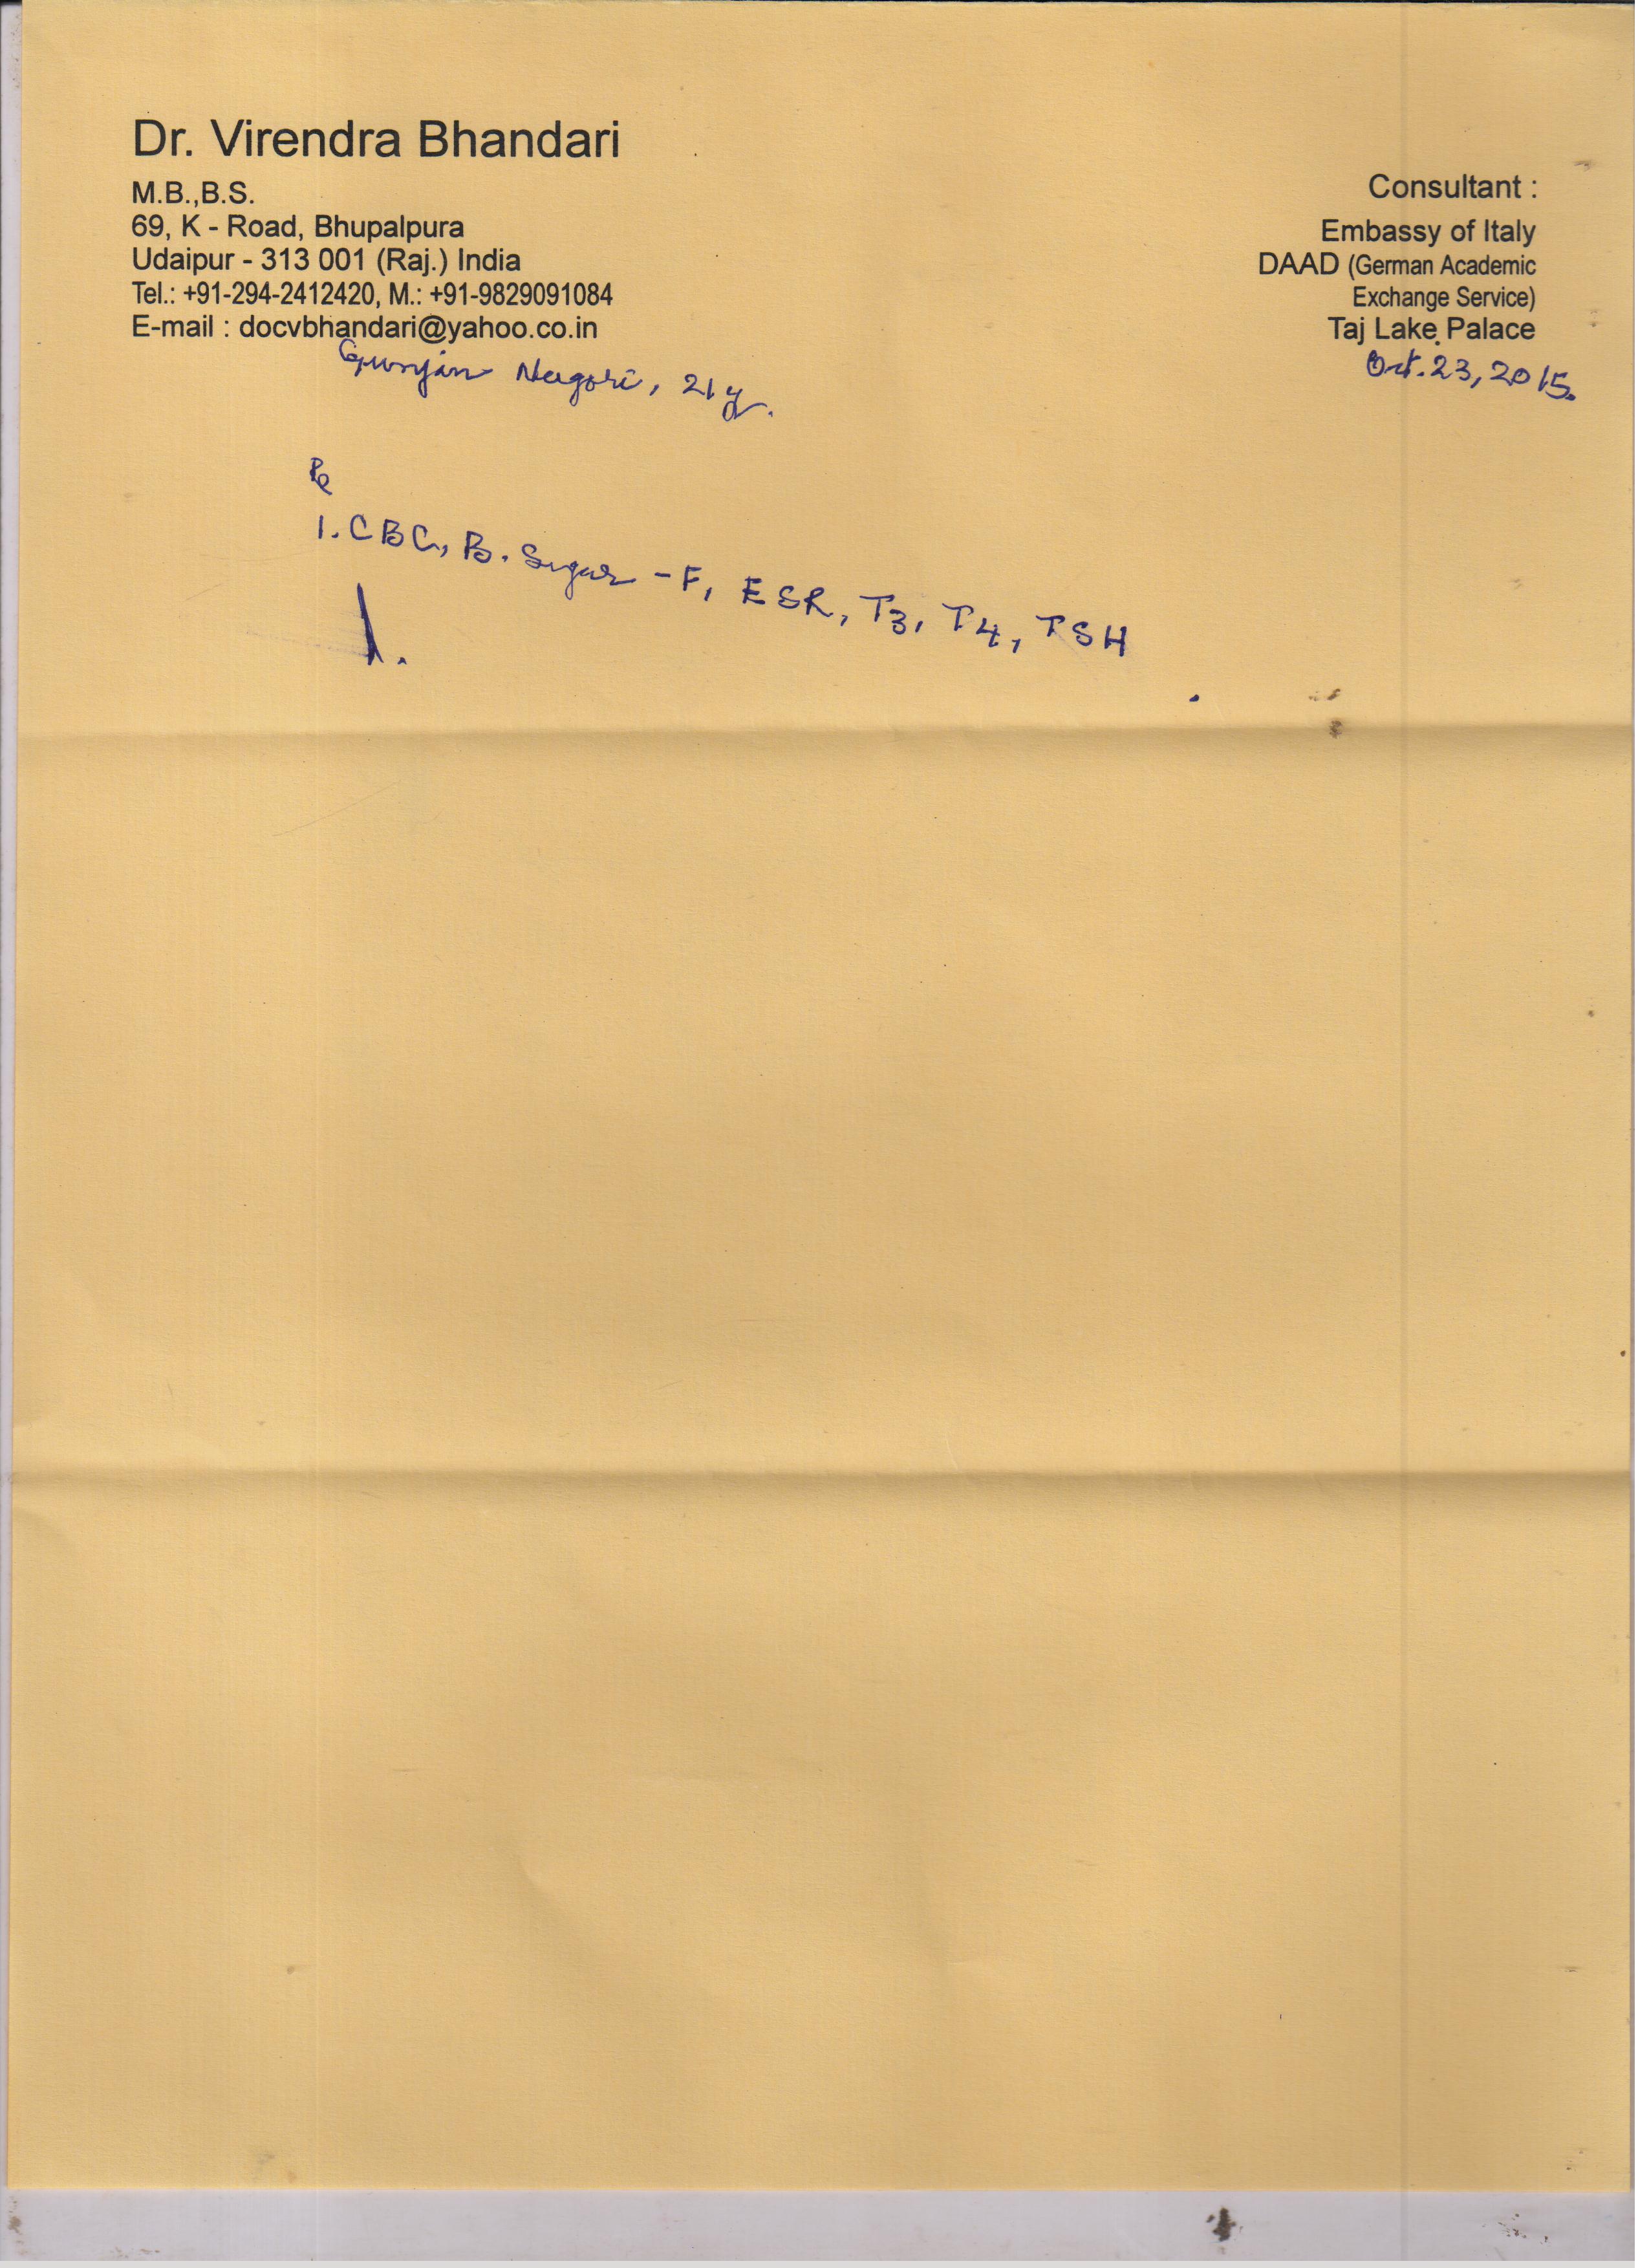 Dr. Virendra Bhandari
M.B.,B.S.
69, K - Road, Bhupalpura
Udaipur - 313 001 (Raj.) India
Tel.: +91-294-2412420, M.: +91-9829091084
E-mail : docvbhandari@yahoo.co.in
Consultant :
Embassy of Italy
DAAD (German Academic
Exchange Service)
Taj Lake Palace
Oct. 23, 2015.
Gunjan Nagori, 21 y.
Rx
1. CBC, B. Sugar - F, ESR, T3, T4, TSH